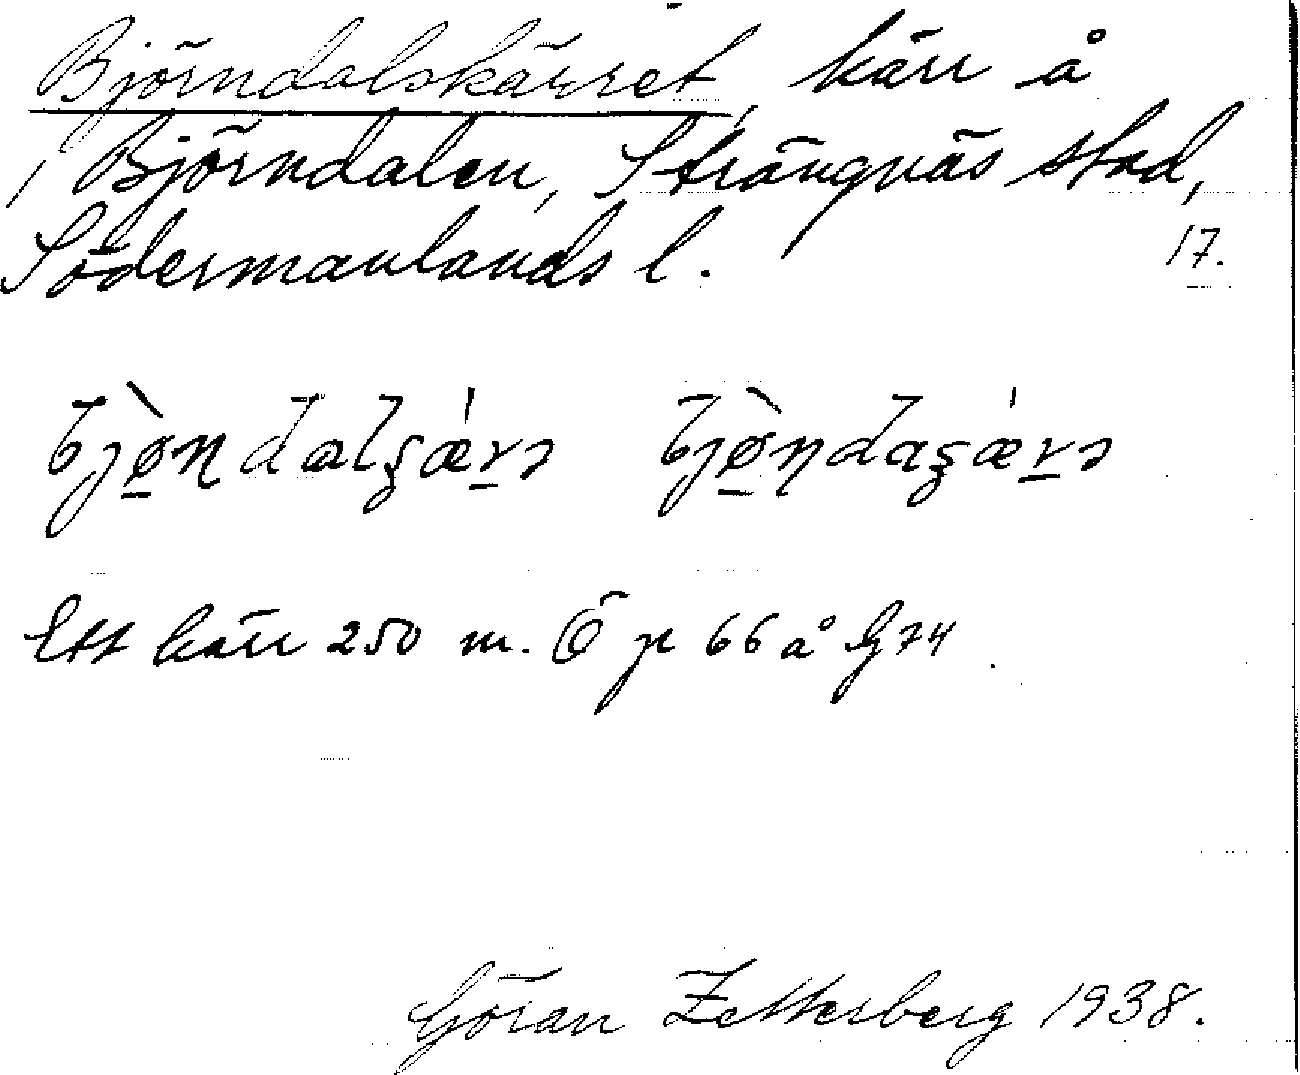 Björndalskärret, kärr å
Björndalen, Strängnäs stad,
Södermanlands l.
17.
bjø̱̀ndalʂǽṟə bjø̱̀ndaʂǽṟə
Ett kärr 250 m. Ö p 66 å G 74
Göran Zetterberg 1938.